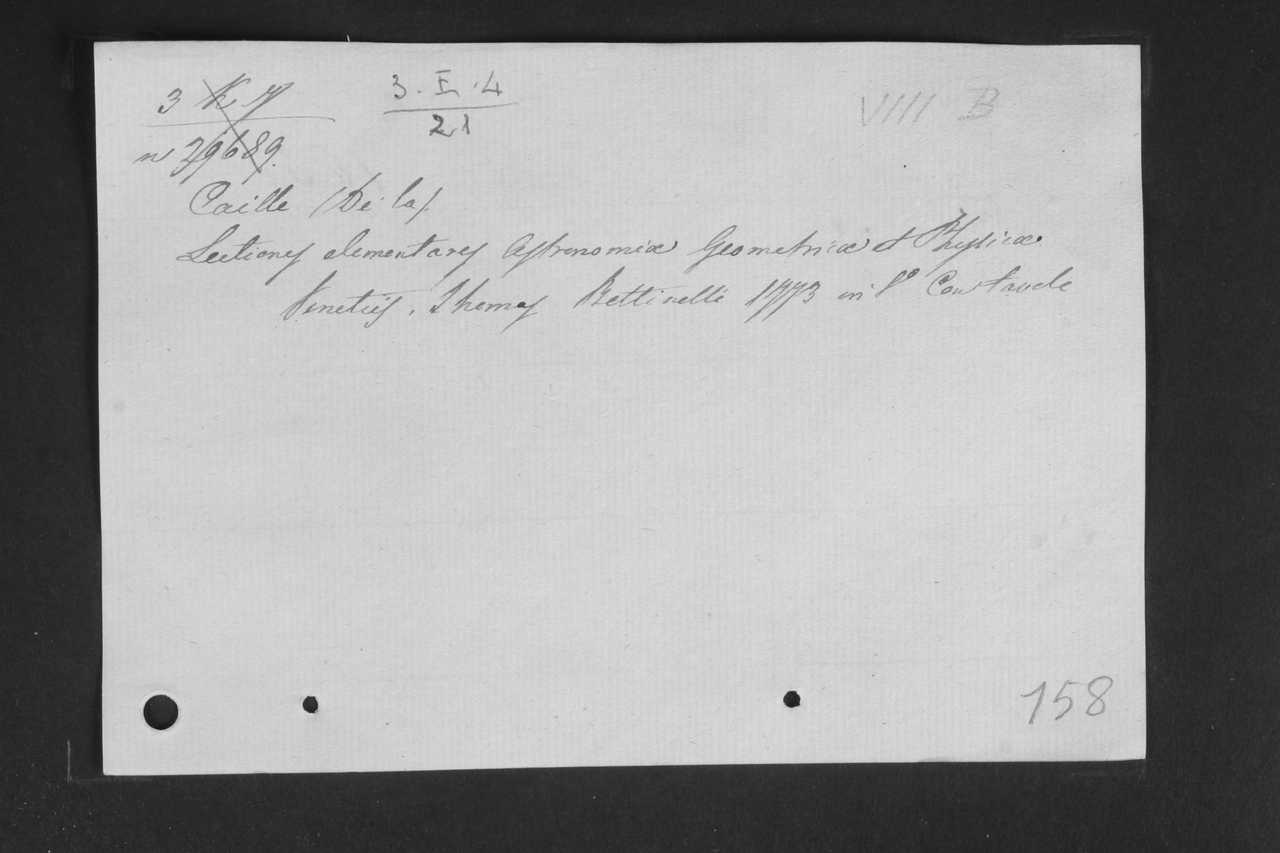 3 K 7
n 29689.
3. E. 4
21
VIII B
Caille (De la).
Lectiones elementares Astronomiæ Geometricæ & Physicæ
Venetiis. Thomas Bettinelli 1773 in 8° Con tavole
158